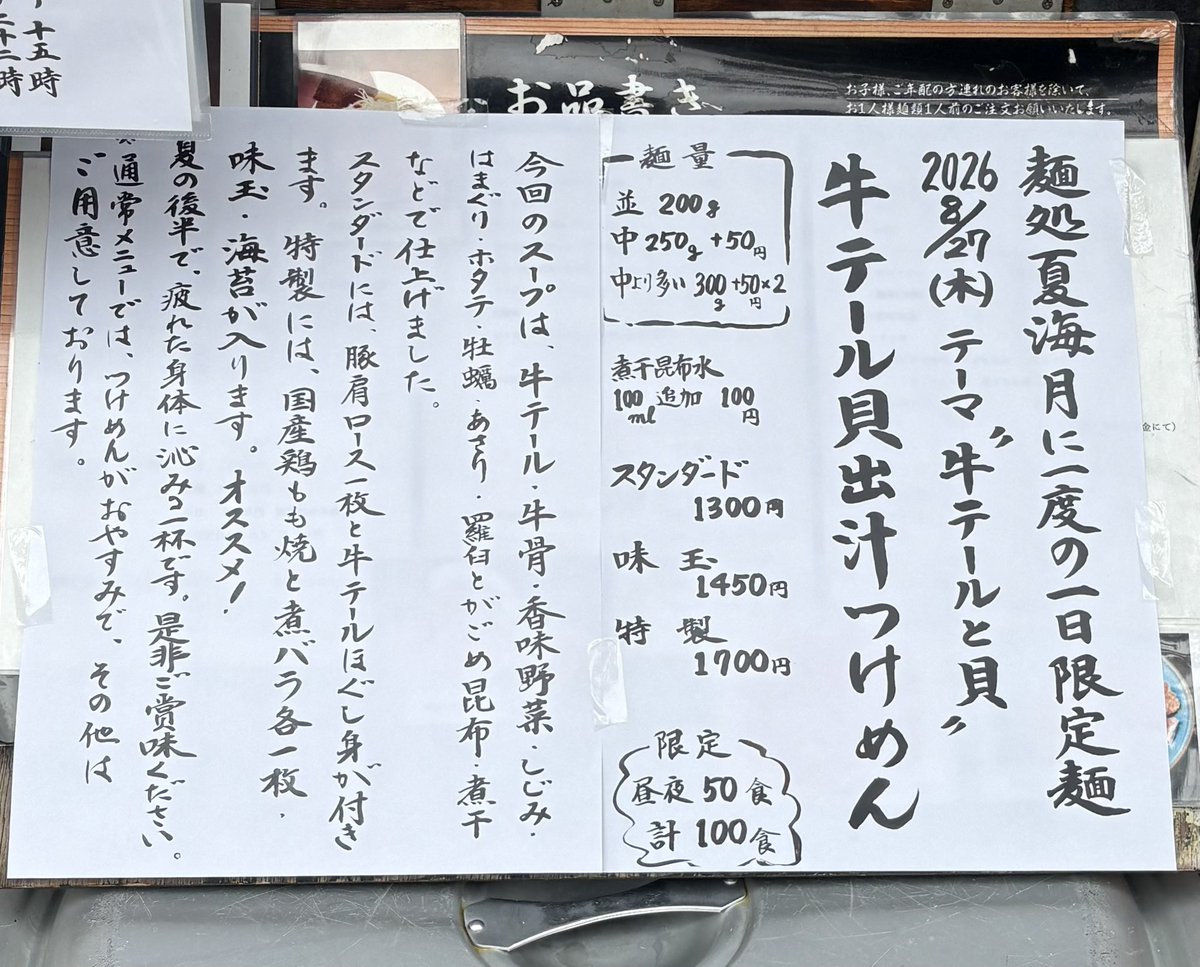 麺処夏海月に一度の一日限定麺
2026
8/27(木) テーマ〝牛テールと貝〟
牛テール貝出汁つけめん
麺量
並 200g
中 250g +50円
中より多い 300g +50×2円
煮干昆布水
100ml 追加 100円
スタンダード
1300円
味玉
1450円
特製
1700円
限定
昼夜50食
計100食
今回のスープは、牛テール・牛骨・香味野菜・しじみ・
はまぐり・ホタテ・牡蠣・あさり・羅臼とがごめ昆布・煮干
などで仕上げました。
スタンダードには、豚肩ロース一枚と牛テールほぐし身が付き
ます。特製には、国産鶏もも焼と煮バラ各一枚・
味玉・海苔が入ります。オススメ!
夏の後半で、疲れた身体に沁みる一杯です。是非ご賞味ください。
※通常メニューでは、つけめんがおやすみで、その他は
ご用意しております。
お品書き
お子様、ご年配の方連れのお客様を除いて、
お1人様麺類1人前のご注文お願いいたします。
金にて)
十五時
二十二時